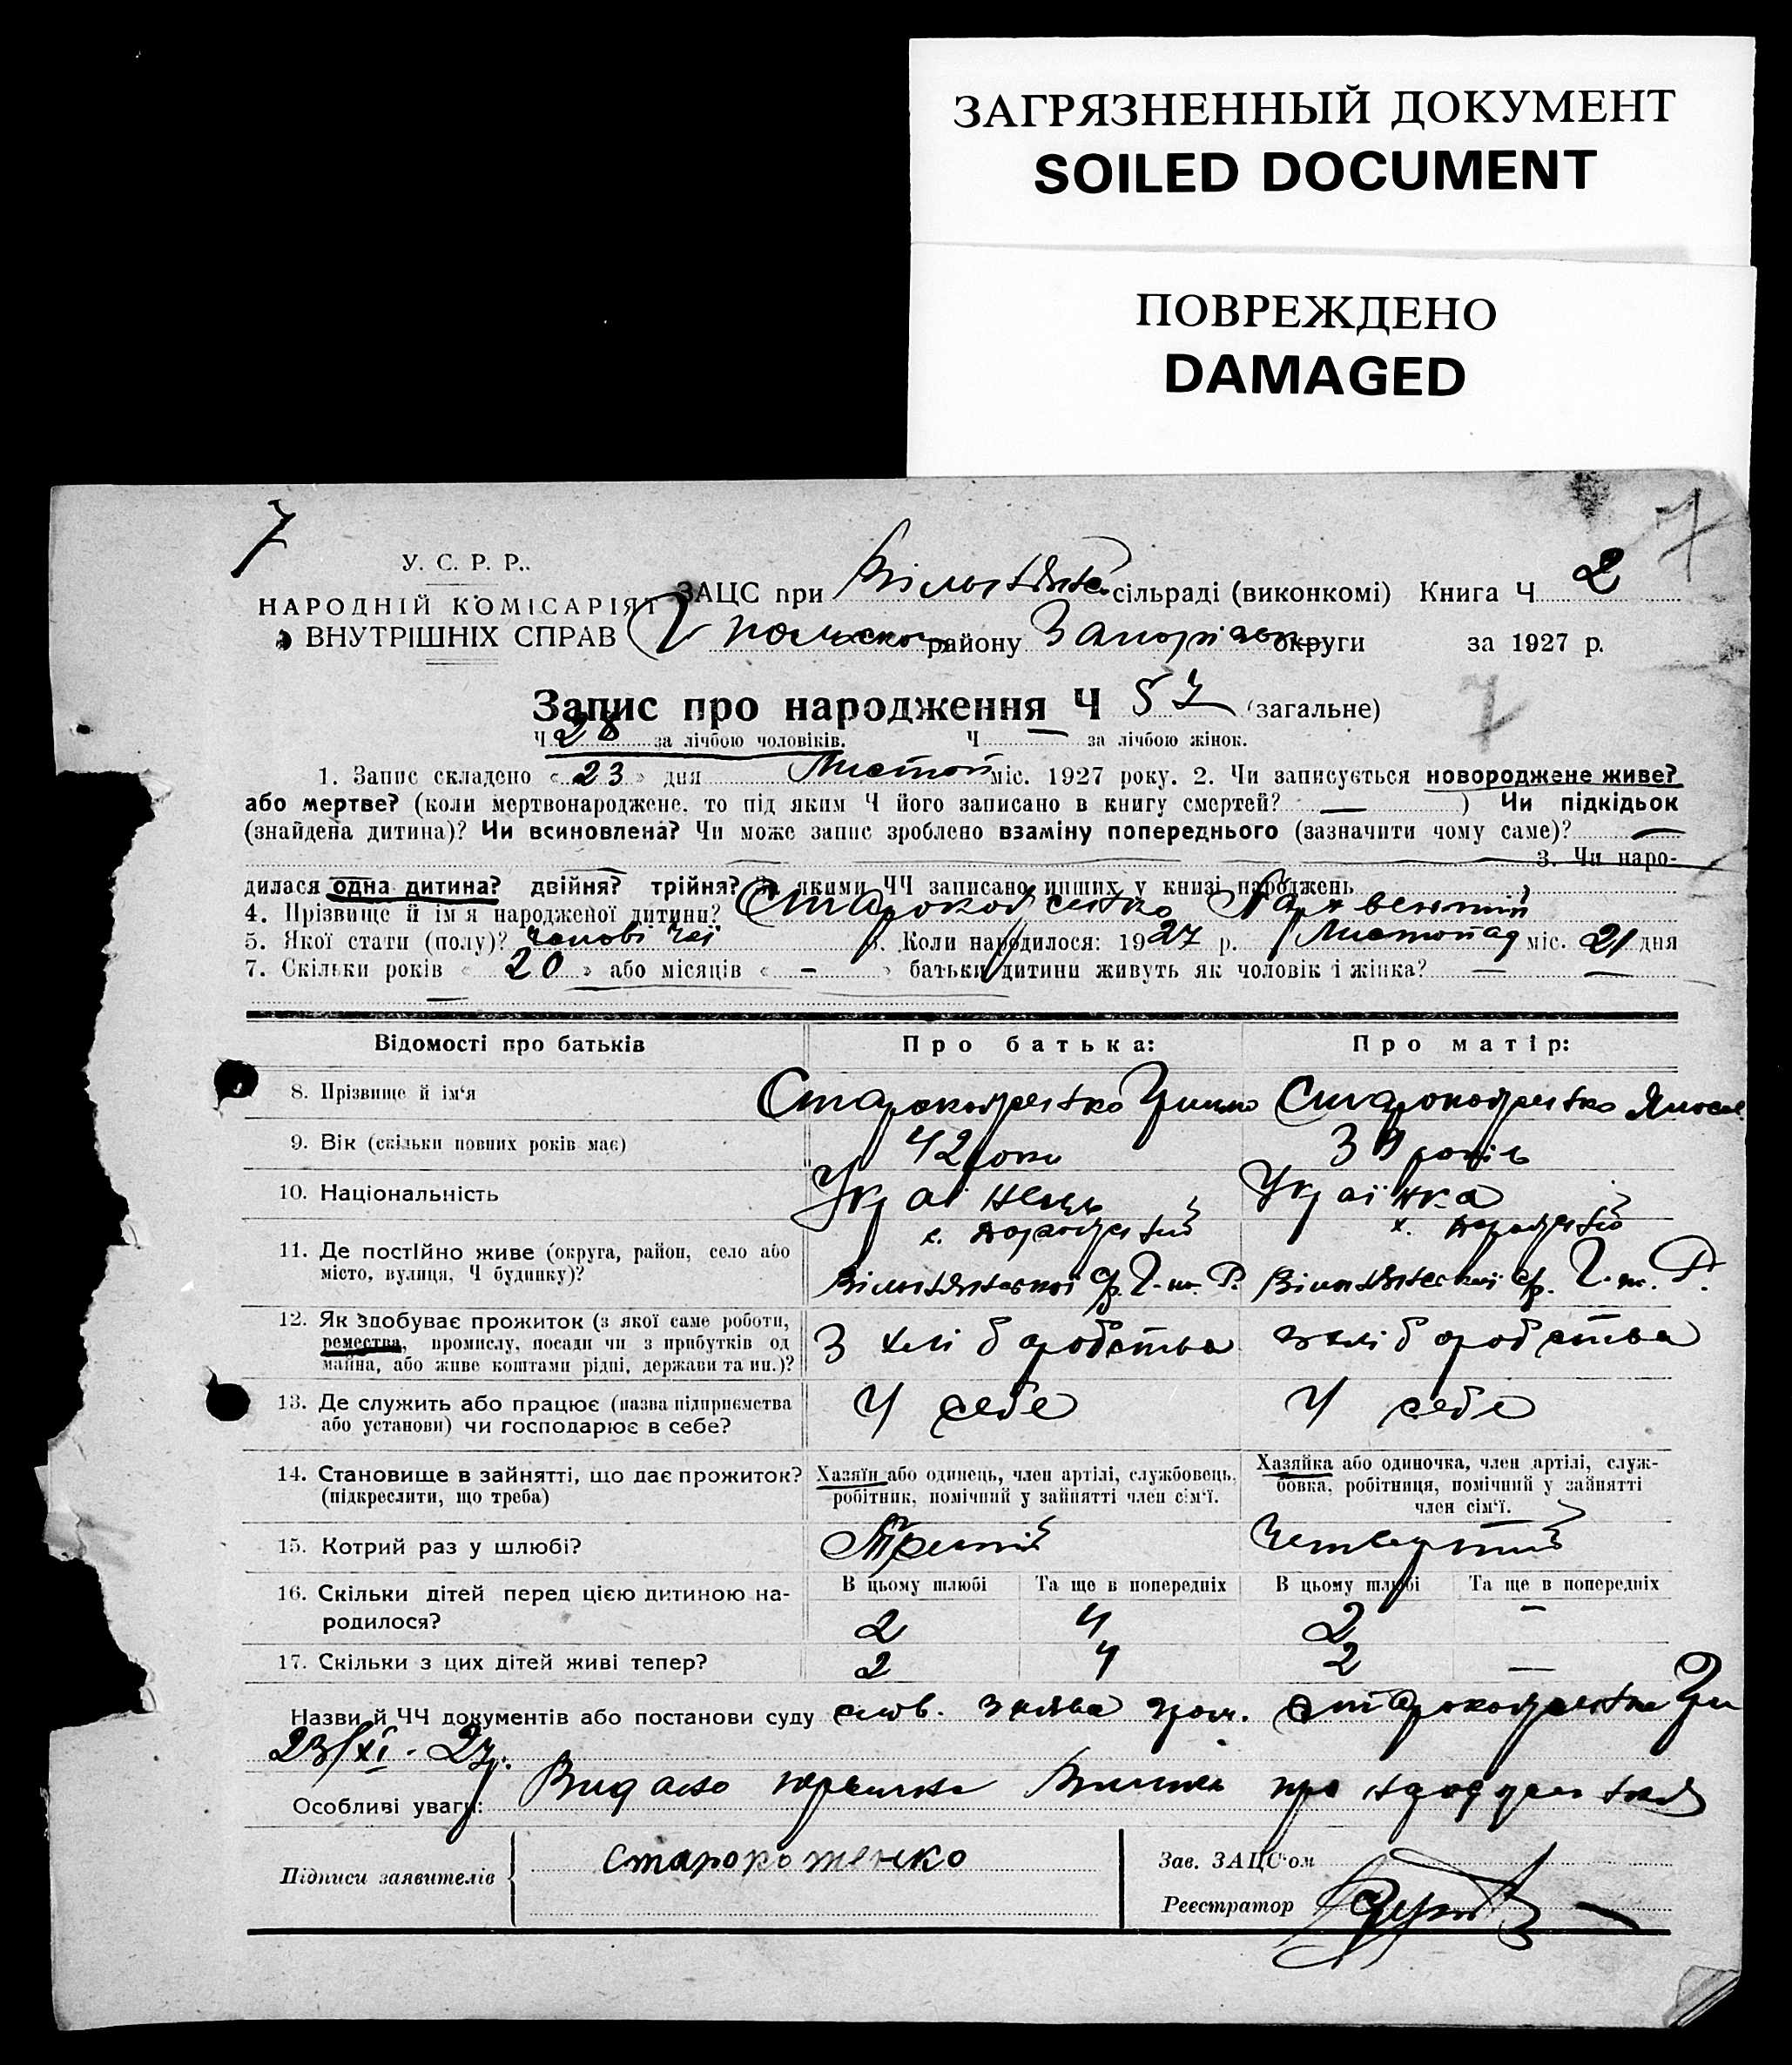 ЗАГРЯЗНЕННЫЙ ДОКУМЕНТ
SOILED DOCUMENT
ПОВРЕЖДЕНО
DAMAGED
7
7
У. С. Р. Р..
НАРОДНІЙ КОМІСАРІЯТ
ВНУТРІШНІХ СПРАВ
ЗАЦС при сільраді (виконкомі) Книга Ч 2
району округи за 1927 р.
Запис про народження Ч 57 (загальне)
7
Ч 28 за лічбою чоловіків. Ч — за лічбою жінок.
1. Запис складено « 23 » дня Листоп міс. 1927 року. 2. Чи записується новороджене живе?
або мертве? (коли мертвонароджене, то під яким Ч його записано в книгу смертей? — ) Чи підкідьок
(знайдена дитина)? Чи всиновлена? Чи може запис зроблено взаміну попереднього (зазначити чому саме)? —
3. Чи наро-
дилася одна дитина? двійня? трійня? За якими ЧЧ записано инших у книзі народжень
4. Прізвище й ім'я народженої дитини?
5. Якої стати (полу)? чоловічої 6. Коли народилося: 1927 р. Листопад міс. 21 дня
7. Скільки років « 20 » або місяців « - » батьки дитини живуть як чоловік і жінка? —
Відомості про батьків Про батька: Про матір:
8. Прізвище й ім'я
9. Вік (скільки повних років має) 42 роки 39 років
10. Національність Українець Українка
11. Де постійно живе (округа, район, село або
місто, вулиця, Ч будинку)?
12. Як здобуває прожиток (з якої саме роботи,
ремества, промислу, посади чи з прибутків од
майна, або живе коштами рідні, держави та ин.)?
З хліборобства з хліборобства
13. Де служить або працює (назва підприємства
або установи) чи господарює в себе?
У себе У себе
14. Становище в зайнятті, що дає прожиток?
(підкреслити, що треба)
Хазяїн або одинець, член артілі, службовець,
робітник, помічний у зайнятті член сім'ї.
Хазяйка або одиночка, член артілі, служ-
бовка, робітниця, помічний у зайнятті
член сім'ї.
15. Котрий раз у шлюбі? Третій Четвертий
16. Скільки дітей перед цією дитиною на-
родилося?
В цьому шлюбі Та ще в попередніх В цьому шлюбі Та ще в попередніх
2 4 2 —
17. Скільки з цих дітей живі тепер? 2 4 2 —
Назви й ЧЧ документів або постанови суду слов. заява гром.
23/XI - 27р.
Особливі уваги: Видано про народження
Підписи заявителів
Зав. ЗАЦС'ом
Реєстратор